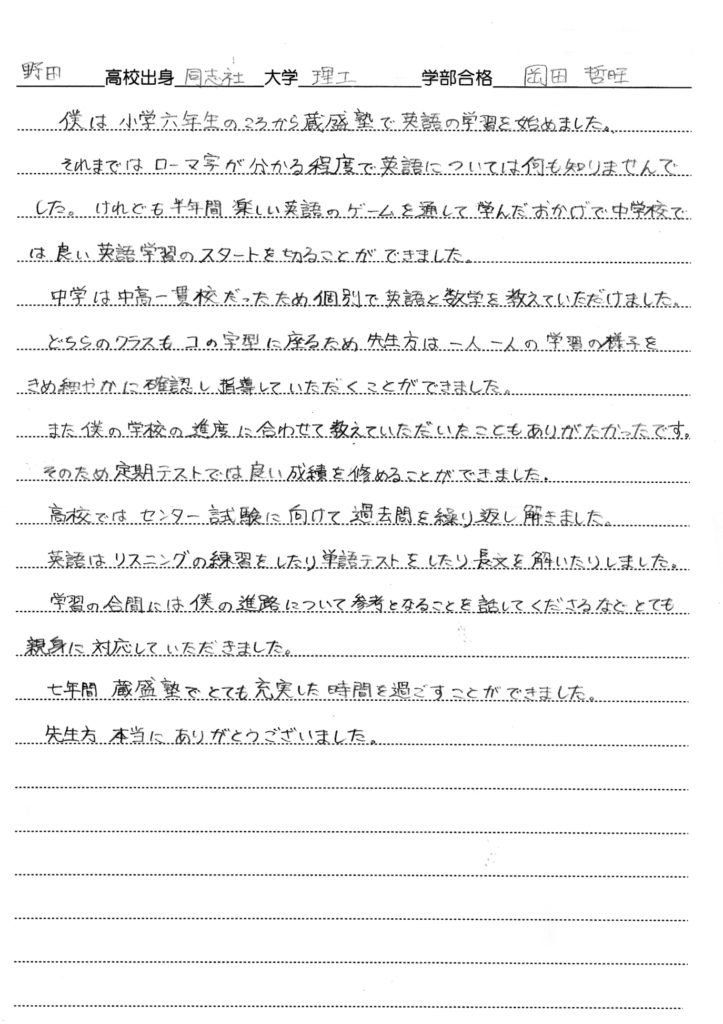 野田 高校出身 同志社 大学 理工 学部合格 岡田 哲旺
僕は小学六年生のころから蔵盛塾で英語の学習を始めました。
それまではローマ字が分かる程度で英語については何も知りませんで
した。けれども半年間楽しい英語のゲームを通して学んだおかげで中学校で
は良い英語学習のスタートを切ることができました。
中学は中高一貫校だったため個別で英語と数学を教えていただけました。
どちらのクラスもコの字型に座るため先生方は一人一人の学習の様子を
きめ細やかに確認し指導していただくことができました。
また僕の学校の進度に合わせて教えていただいたこともありがたかったです。
そのため定期テストでは良い成績を修めることができました.
高校ではセンター試験に向けて過去問を繰り返し解きました。
英語はリスニングの練習をしたり単語テストをしたり長文を解いたりしました。
学習の合間には僕の進路について参考となることを話してくださるなどとても
親身に対応していただきました。
七年間蔵盛塾でとても充実した時間を過ごすことができました。
先生方本当にありがとうございました。